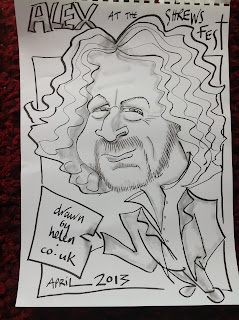 ALEX AT THE SHREWS FEST
drawn
by
helen
co.uk
APRIL 2013